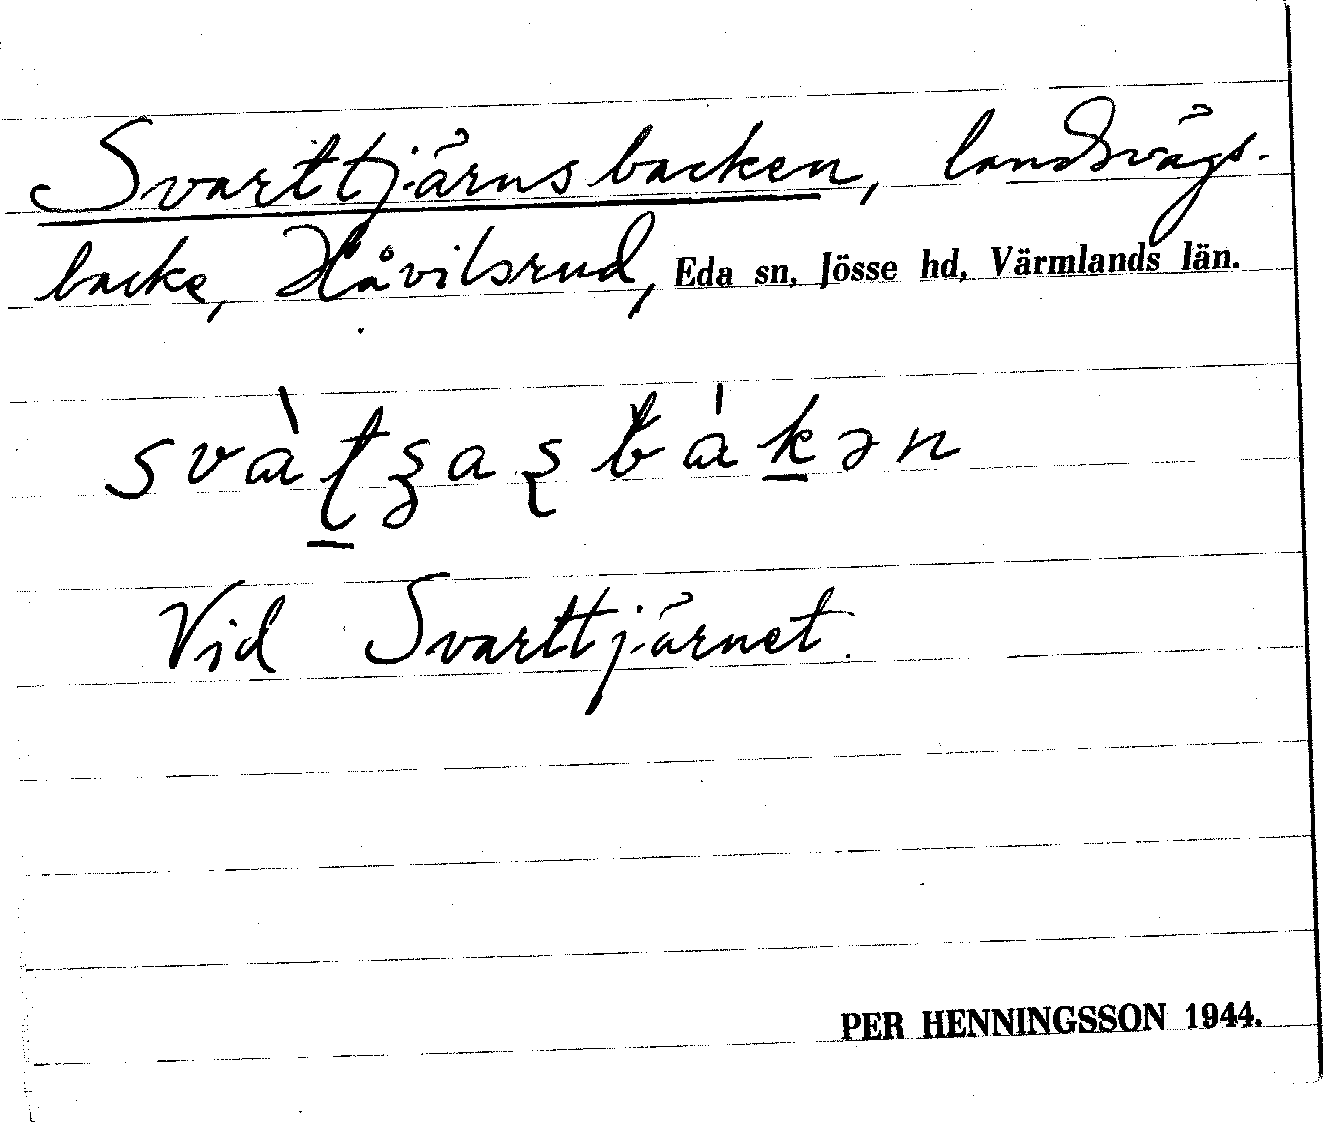 Svarttjärnsbacken, landsvägs-
backe, Håvilsrud, Eda sn, Jösse hd, Värmlands län.
Vid Svarttjärnet.
PER HENNINGSSON 1944.